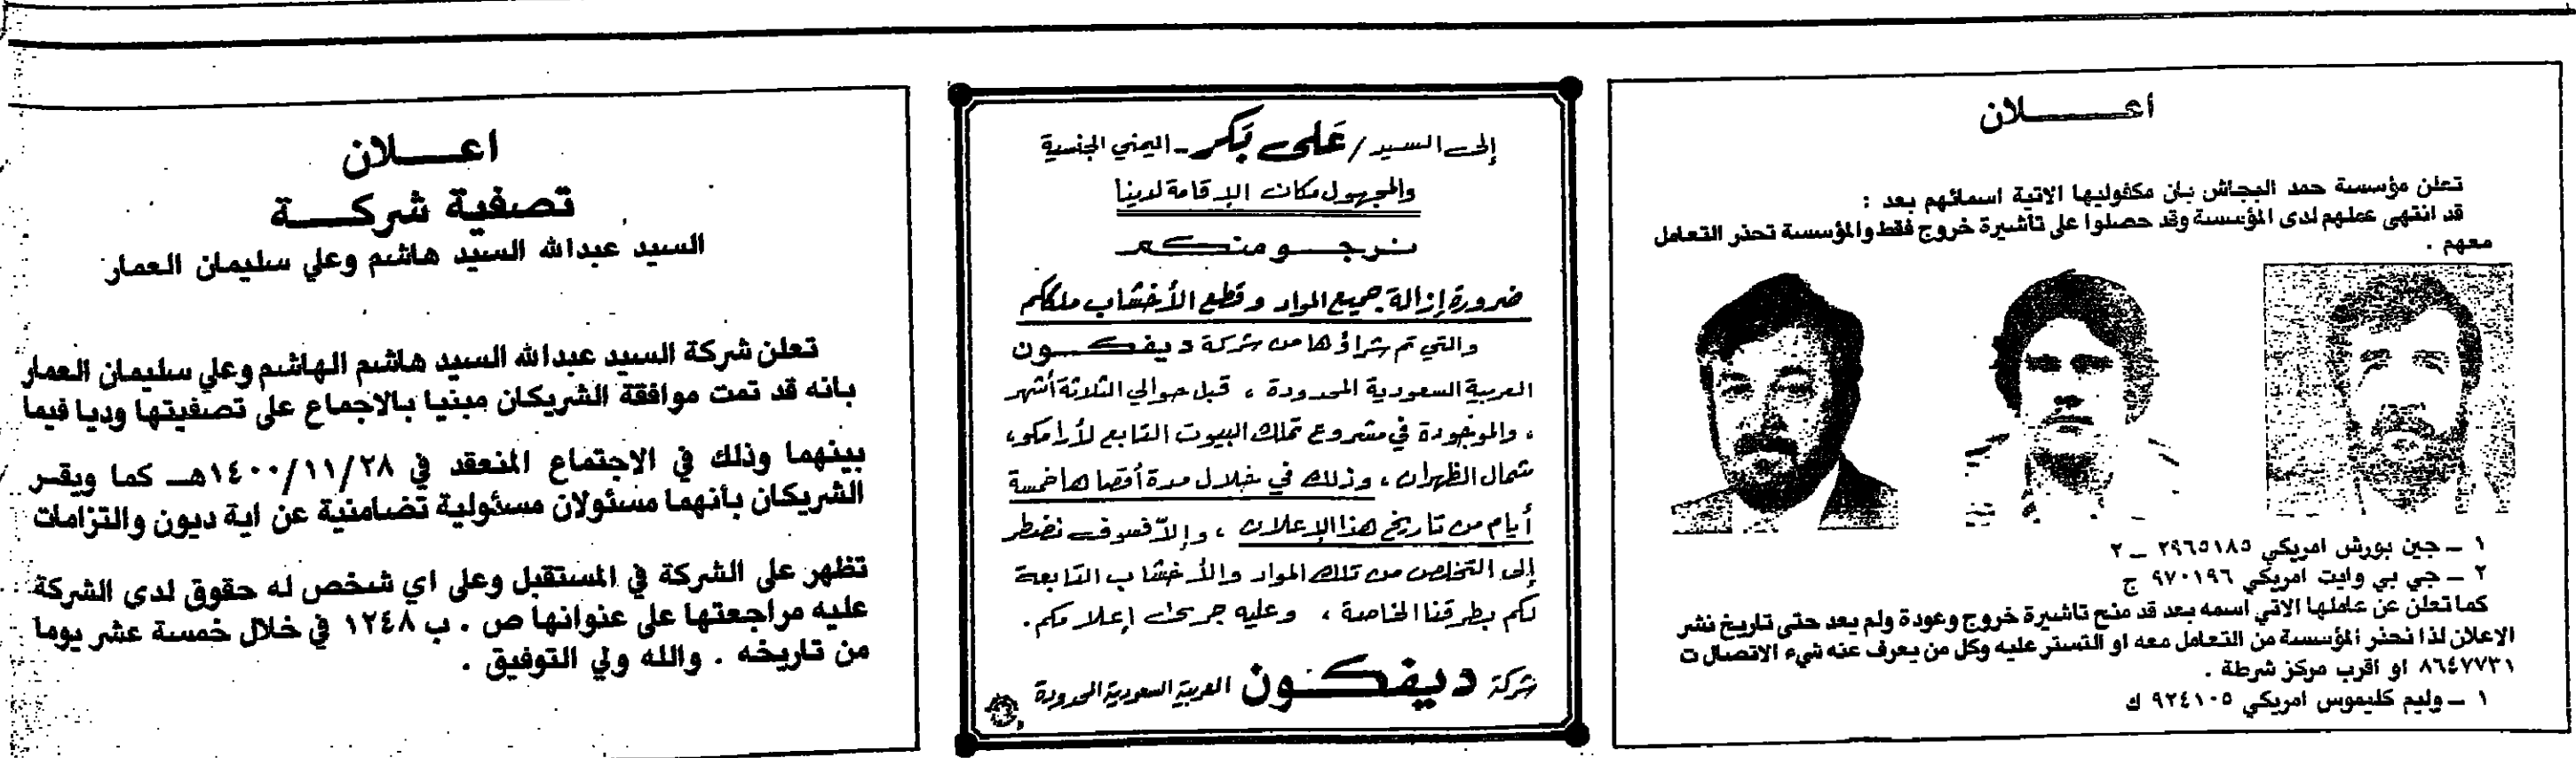 اعـــلان
تعلن مؤسسة حمد البجاش بان مكفوليها الاتية اسمائهم بعد :
قد انتهى عملهم لدى المؤسسة وقد حصلوا على تأشيرة خروج فقط والمؤسسة تحذر التعامل
معهم .
١ ــ جين بورش امريكي ٢٩٦٥١٨٥ ــ ٢
٢ ــ جي بي وايت امريكي ٩٧٠١٩٦ ج
كما تعلن عن عاملها الاتي اسمه بعد قد منح تاشيرة خروج وعودة ولم يعد حتى تاريخ نشر
الاعلان لذا نحذر المؤسسة من التعامل معه او التستر عليه وكل من يعرف عنه شيء الاتصال ت
٨٦٤٧٧٣١ او اقرب مركز شرطة .
١ ــ وليم كليموس امريكي ٩٢٤١٠٥ ك
إلى السيد / على بكر - اليمني الجنسية
والمجهول مكان الإقامة لدينا
نرجو منكم
ضرورة إزالة جميع المواد وقطع الأخشاب ملككم
والتي تم شراؤها من شركة ديفكون
العربية السعودية المحدودة ، قبل حوالي الثلاثة أشهر
، والموجودة في مشروع تملك البيوت التابع لأرامكو ،
شمال الظهران ، وذلك في خلال مدة أقصاها خمسة
أيام من تاريخ هذا الإعلان ، وإلاّ فسوف نضطر
إلى التخلص من تلك المواد والأخشاب التابعة
لكم بطرقنا الخاصة ، وعليه جرى إعلامكم .
شركة ديفكون العربية السعودية المحدودة
اعـــلان
تصفية شركـــة
السيد عبدالله السيد هاشم وعلي سليمان العمار
تعلن شركة السيد عبدالله السيد هاشم الهاشم وعلي سليمان العمار
بانه قد تمت موافقة الشريكان مبنيا بالاجماع على تصفيتها وديا فيما
بينهما وذلك في الاجتماع المنعقد في ١٤٠٠/١١/٢٨هـ كما ويقر
الشريكان بأنهما مسئولان مسئولية تضامنية عن اية ديون والتزامات
تظهر على الشركة في المستقبل وعلى اي شخص له حقوق لدى الشركة
عليه مراجعتها على عنوانها ص . ب ١٢٤٨ في خلال خمسة عشر يوما
من تاريخه . والله ولي التوفيق .